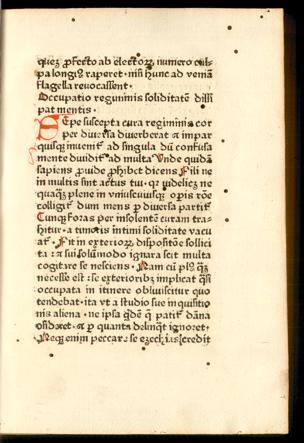 quez ꝓfecto ab electoꝝ numero cul-
pa longiꝰ raperet · nisi hunc ad veniā
flagella reuocassent ·
Occupatio regiminis soliditatē dissi
pat mentis ·
Sepe suscepta cura regiminis cor
per diuersa diuerberat ⁊ impar
quisqꝫ inuenit᷑ ad singula dū confusa
mente diuidit᷑ ad multa Vnde quidā
sapiens ꝓuide ꝓhibet dicens Fili ne
in multis sint actus tui · qꝛ videlicꝫ ne
quaqꝫ plene in vniuscuiusqꝫ opis rōe
colligit᷑ dum mens ꝑ diuersa partit᷑
Cunqꝫ foras per insolentē curam tra-
hitur · a timoris intimi soliditate vacu
at᷑ · Fit in exterioꝝ dispositōne sollici
ta : ⁊ sui solūmodo ignara scit multa
cogitare se nesciens · Nam cū plꝰ qꝫ
necesse est : se exterioribꝫ implicat q̄si
occupata in itinere obliuiscitur quo
tendebat · ita vt a studio sue inquisitio
nis aliena · ne ipsa qͥdē q̄ patit᷑ dāna
ꝯsideret · ⁊ ꝑ quanta delinqͣt ignoret ·
Neqꝫ enim peccare se ezechias credidit